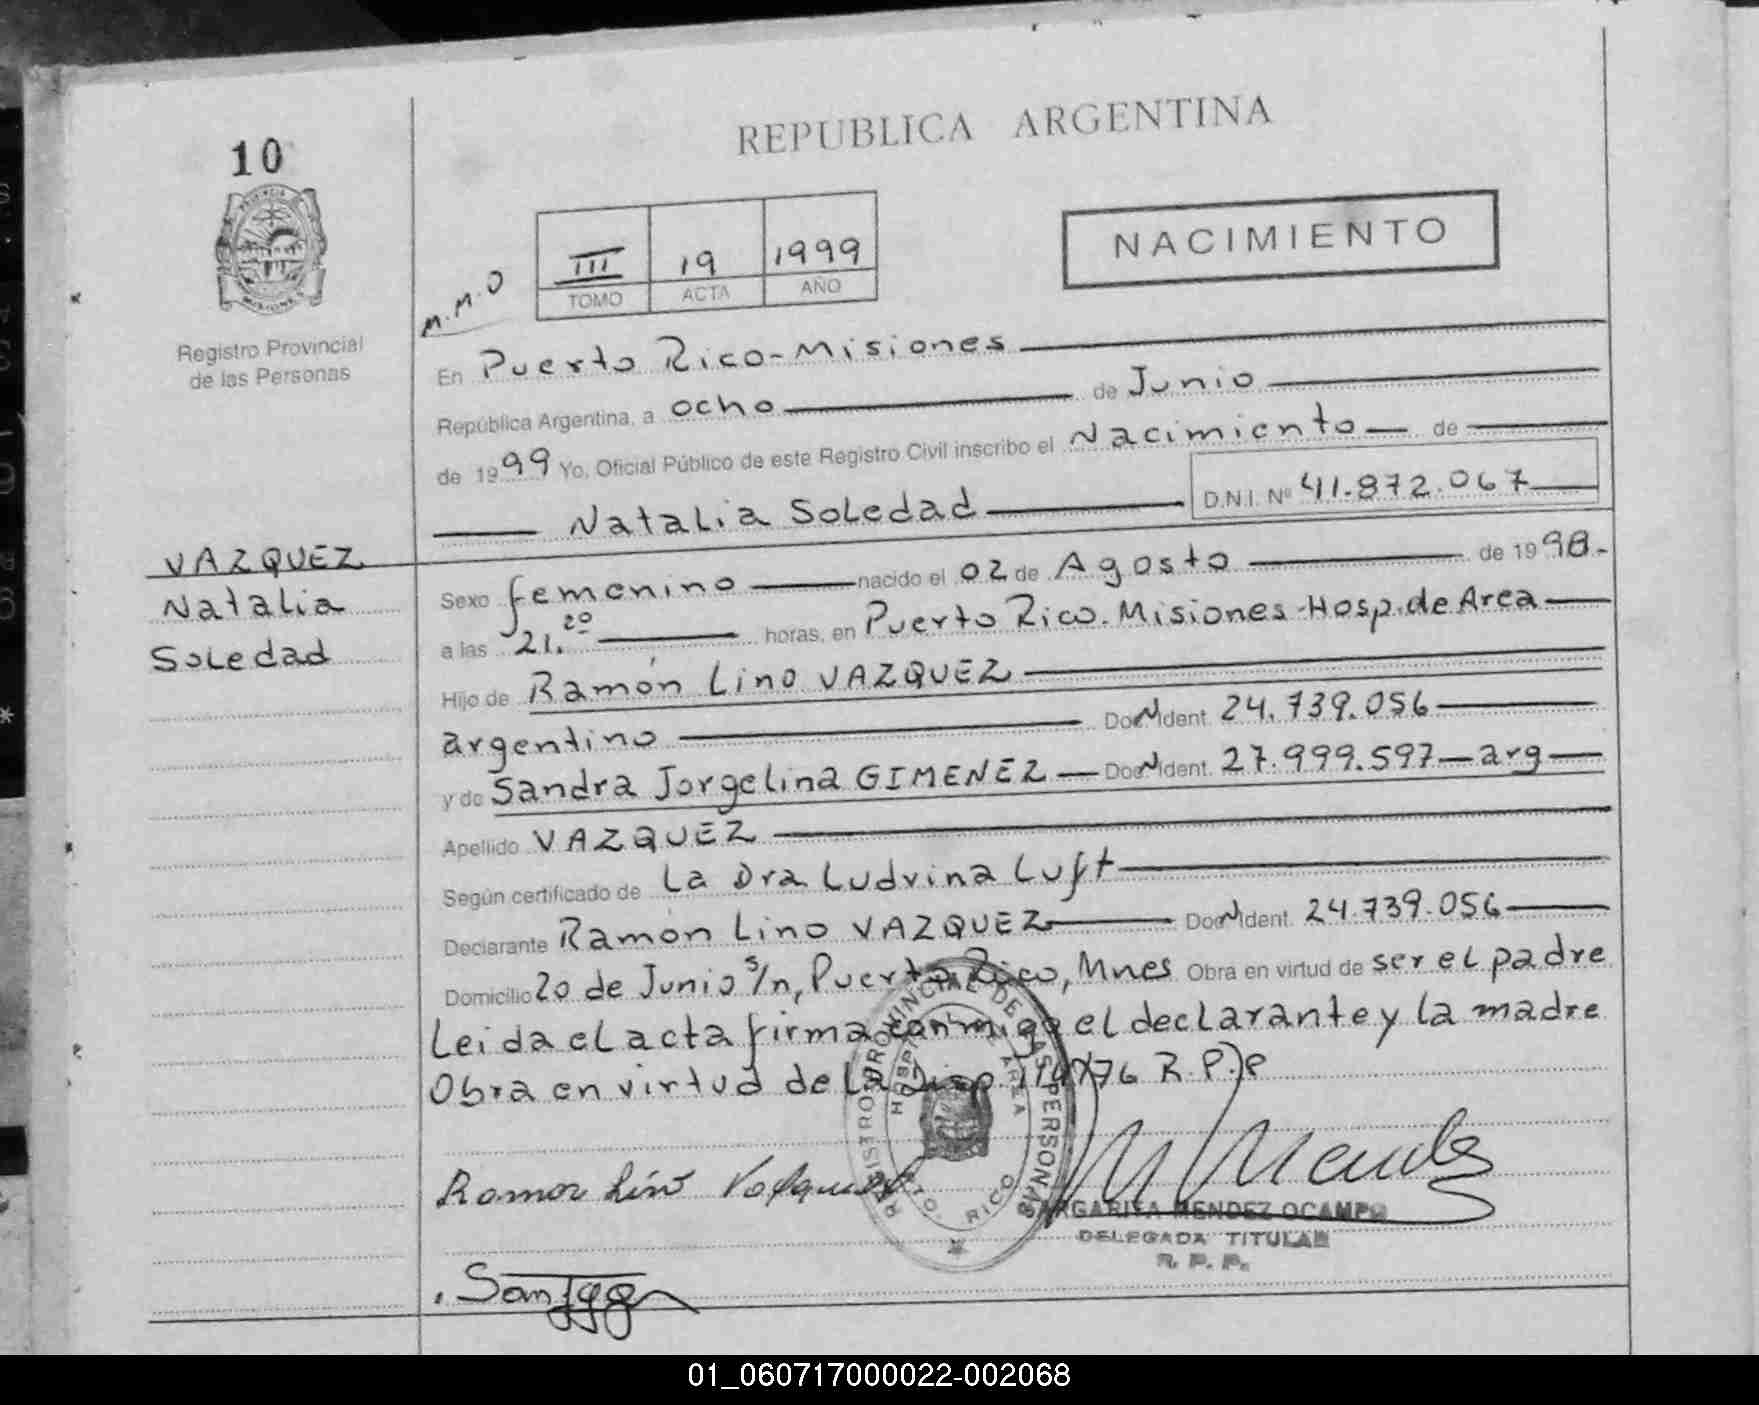 REPUBLICA ARGENTINA
10
PROVINCIA
MISIONES
Registro Provincial
de las Personas
M.M.O
III 19 1999
TOMO ACTA AÑO
NACIMIENTO
En Puerto Rico-Misiones
República Argentina, a ocho de Junio
de 1999 Yo, Oficial Público de este Registro Civil inscribo el Nacimiento de
Natalia Soledad D.N.I. Nº 41.872.067
VAZQUEZ
Natalia
Soledad
Sexo femenino nacido el 02 de Agosto de 1998.
a las 21.20 horas, en Puerto Rico. Misiones-Hosp. de Area
Hijo de Ramón Lino VAZQUEZ
argentino Doc. Ident. 24.739.056
y de Sandra Jorgelina GIMENEZ Doc. Ident. 27.999.597 arg
Apellido VAZQUEZ
Según certificado de La Dra Ludvina Luft
Declarante Ramón Lino VAZQUEZ Doc. Ident. 24.739.056
Domicilio 20 de Junio s/n, Puerto Rico, Mnes Obra en virtud de ser el padre
Leida el acta firma conmigo el declarante y la madre
Obra en virtud de la Disp. /76 R.P.P
REGISTRO PROVINCIAL DE LAS PERSONAS
HOSPITAL DE AREA
PTO. RICO
Ramon Lino Vasquez
MARGARITA MENDEZ OCAMPO
DELEGADA TITULAR
R. P. P.
01_060717000022-002068